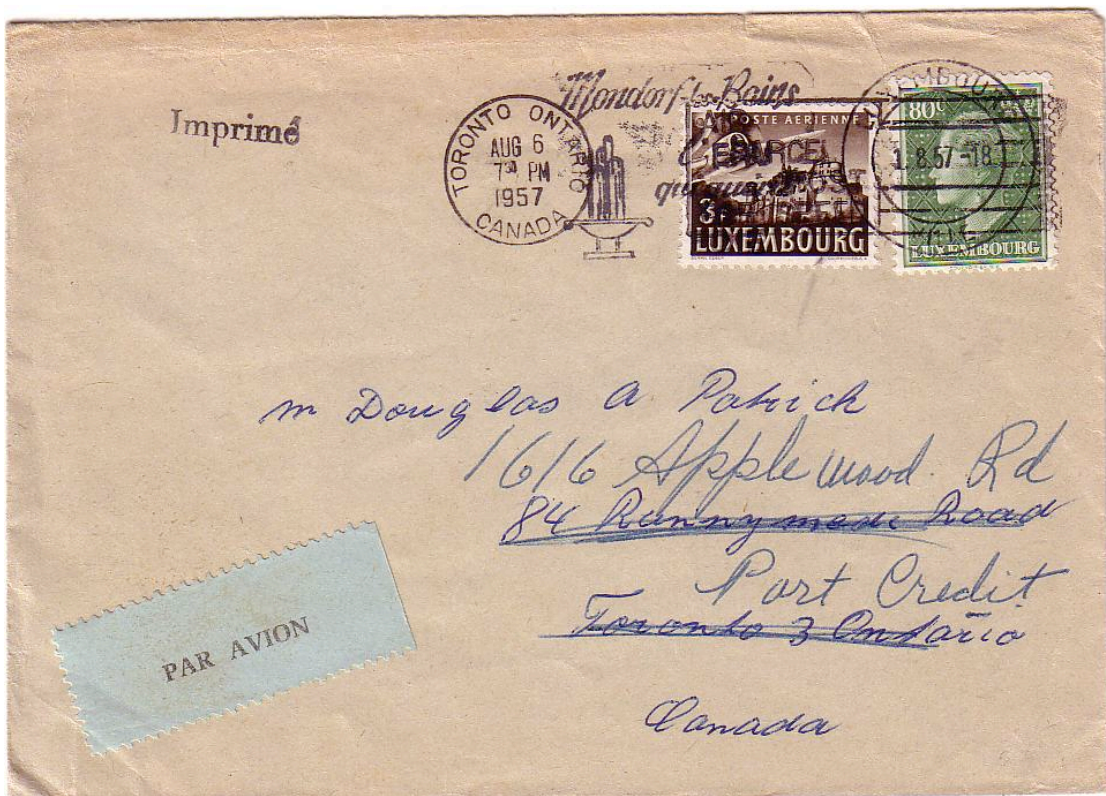 Imprimé
TORONTO ONTARIO
AUG 6
7³⁰ PM
1957
CANADA
Mondorf-les-Bains
POSTE AERIENNE
3F
LUXEMBOURG
LUXEMBOURG
1.8.57-18
80c
LUXEMBOURG
m Douglas a Patrick
1616 Applewood. Rd
84 Runnymede Road
Port Credit
Toronto 3 Ontario
Canada
PAR AVION